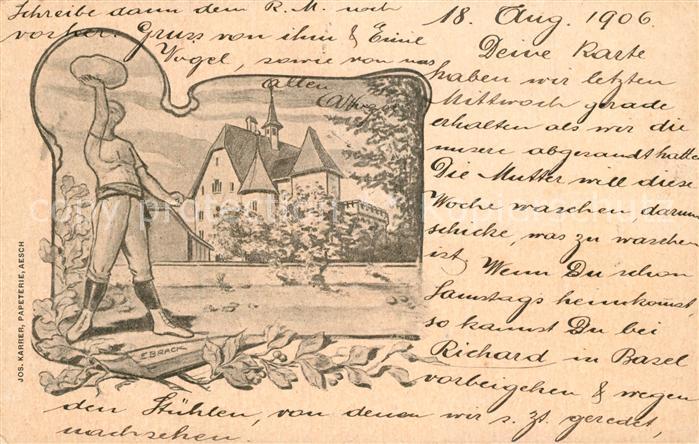 18. Aug. 1906.
Deine Karte
haben wir letzten
Mittwoch gerade
erhalten als wir die
unsere abgesandt hatten
Die Mutter will diese
Woche waschen, darum
schicke, was zu waschen
ist. Wenn Du schon
Samstags heimkommst,
so kannst Du bei
Richard in Basel
vorbeigehen & wegen
den Stühlen, von denen wir s. Zt. geredet,
nachsehen.
Schreibe dann dem R. M. noch
vorher. Gruss von ihm & Emil
Vogel, sowie von uns
allen
E BRACK
JOS. KARRER, PAPETERIE, AESCH